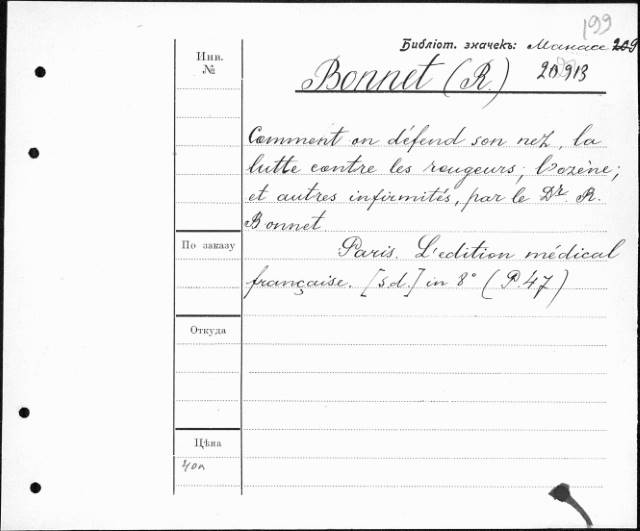 199
Библіот. значекъ: Манасе 209
Инв.
№
Bonnet (R.) 20913
Comment on défend son nez, la
lutte contre les rougeurs, l'ozène;
et autres infirmités, par le Dr. R.
Bonnet
По заказу
Paris. L'edition médical
française. [s.d.] in 8° (P. 47)
Откуда
Цѣна